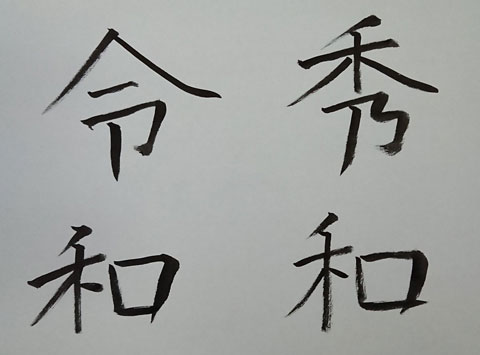 秀和
令和